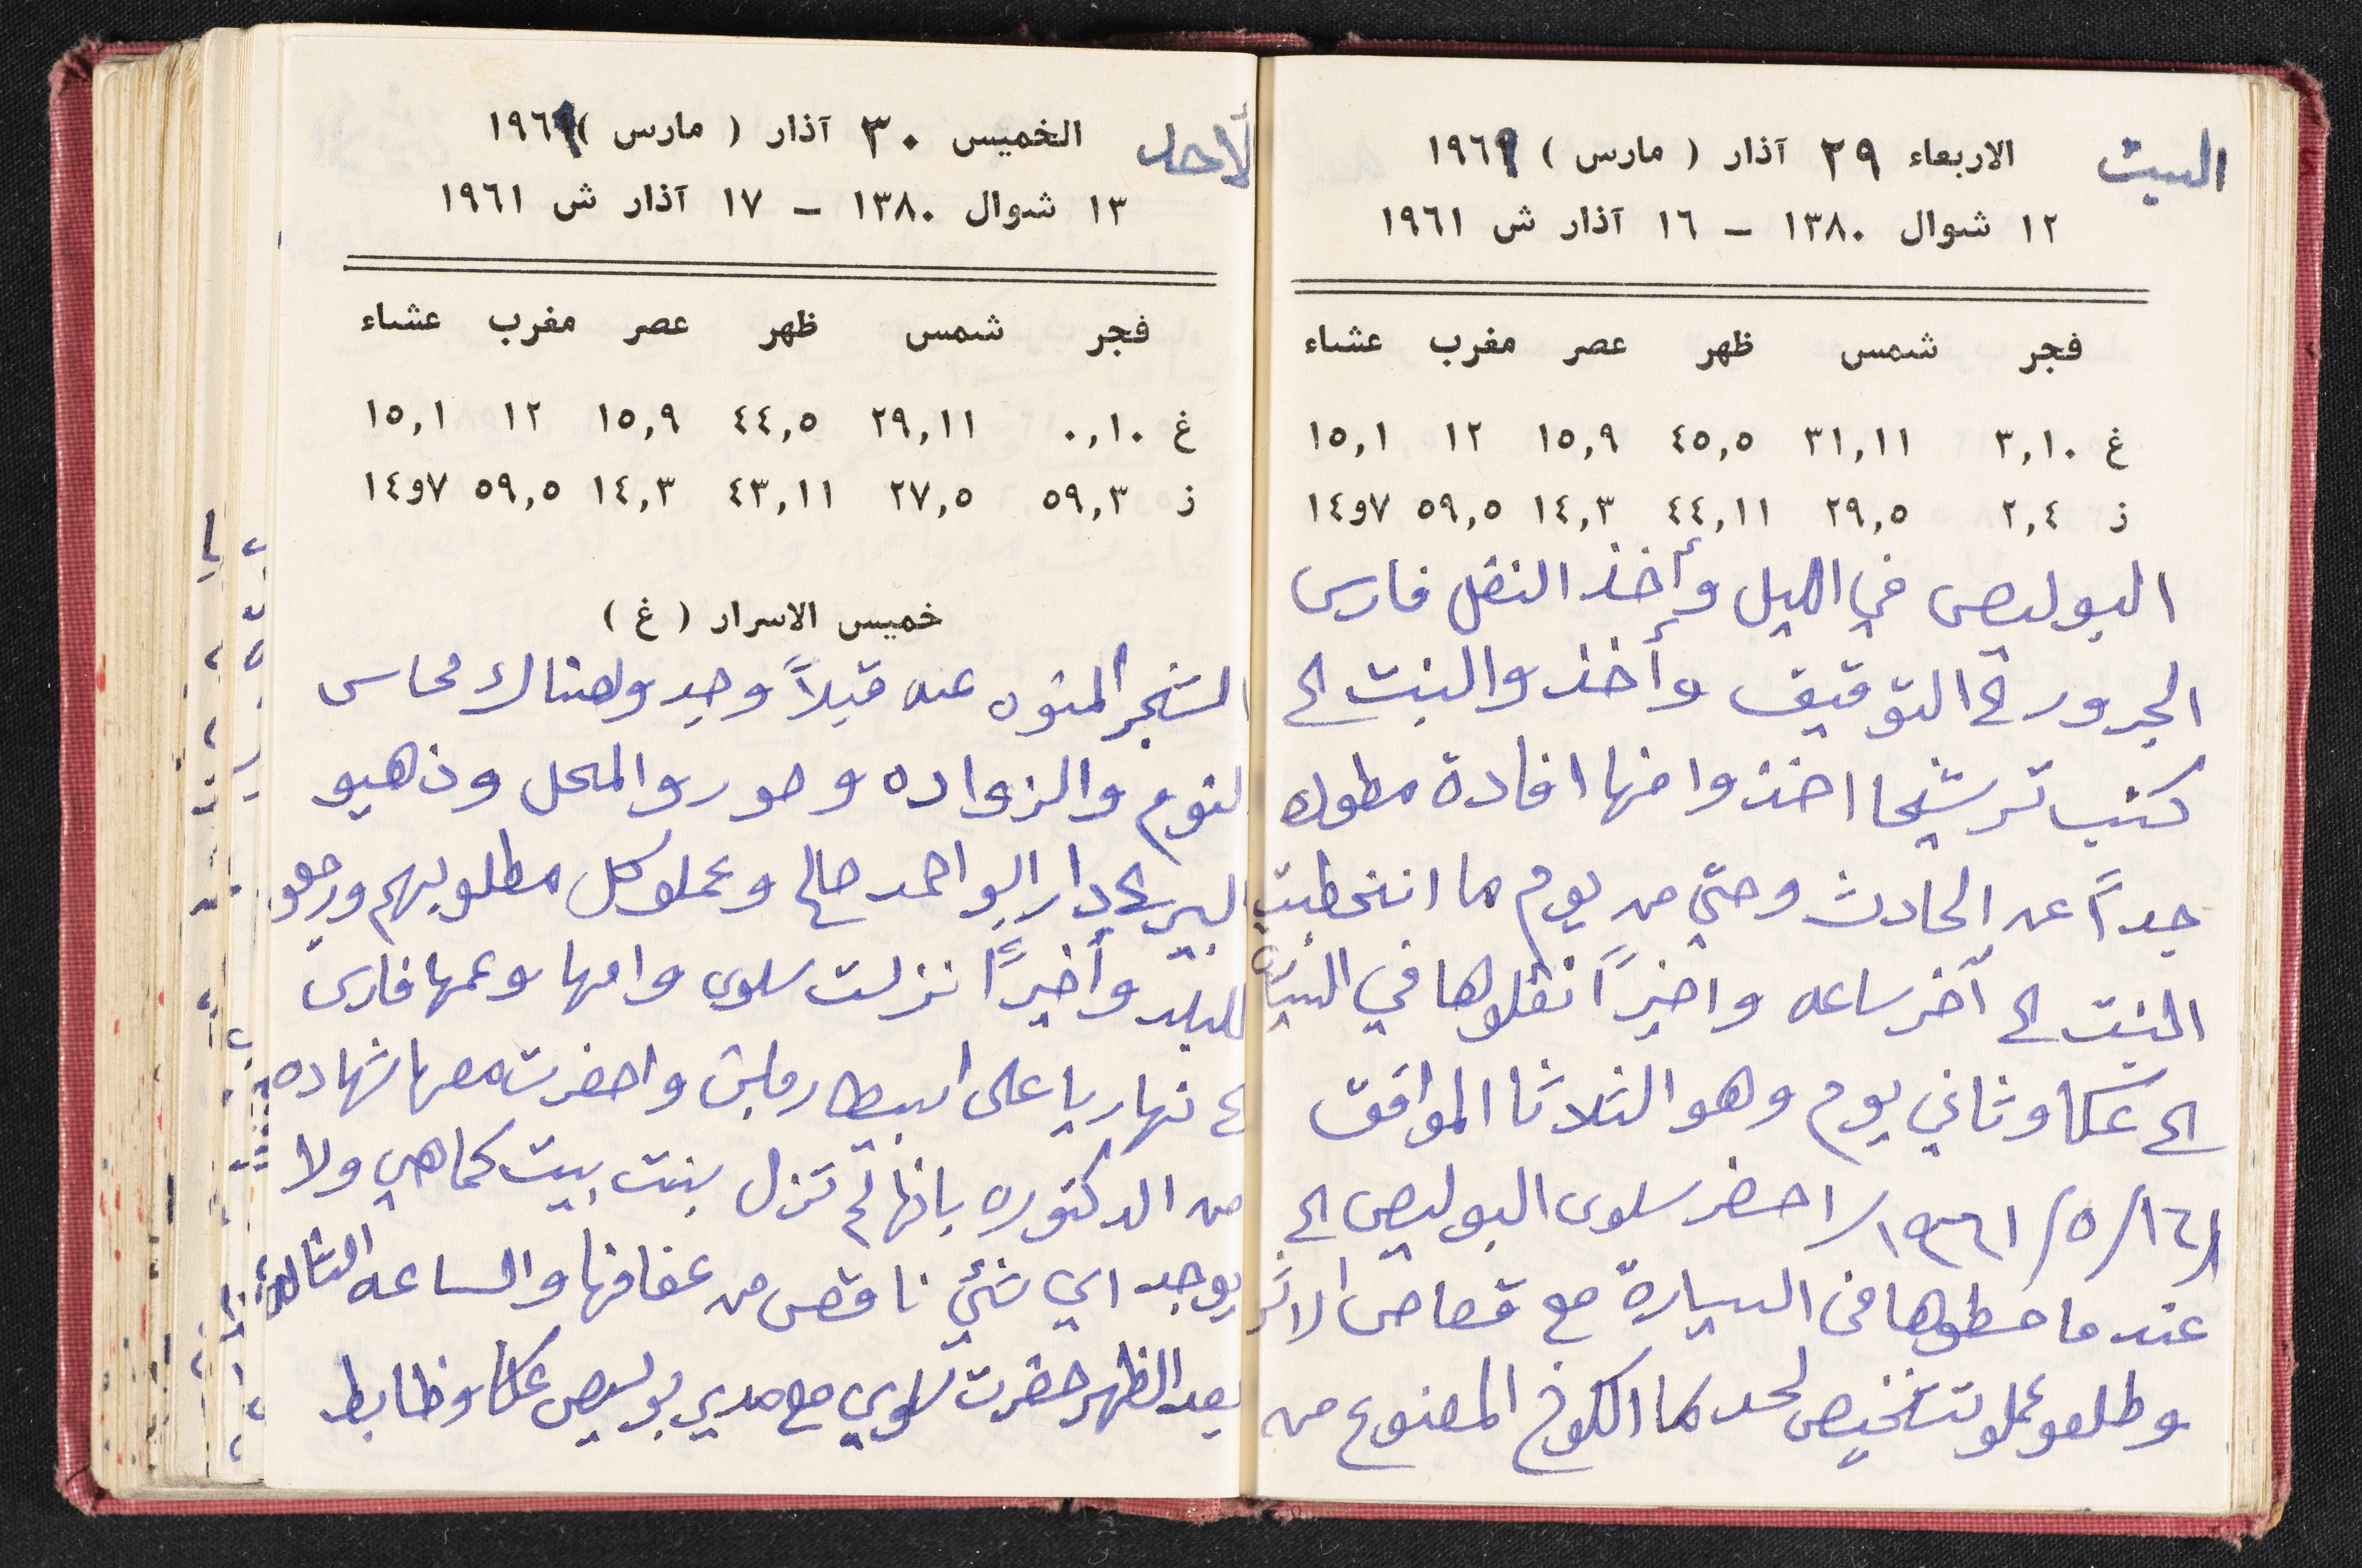 السبت
الاربعاء ٢٩ آذار ( مارس ) ١٩٦٩
١٢ شوال ١٣٨٠ - ١٦ آذار ش ١٩٦١
فجر شمس ظهر عصر مغرب عشاء
غ ٣,١٠ ٣١,١١ ٤٥,٥ ١٥,٩ ١٢ ١٥,١
ز ٢,٤ ٢٩,٥ ٤٤,١١ ١٤,٣ ٥٩,٥ ٧و١٤
البوليص في الليل وأخذ النغل فارس
الجرور الى التوقيف وأخذو البنت الى
كنب ترشيحا اخذوا منها افادة مطوله
جداً عن الحادث وحتى من يوم ما انخطبت
البنت الى آخر ساعه واخيراً نقلوها في السياره
الى عكا وثاني يوم وهو الثلاثا الموافق
١٦/٥/١٩٦١ احضر سلوى البوليص الى
عندما حطوها في السيارة مع قصاص الاثر
وطلعو عملو تشخيص لحد ما الكوخ المصنوع من
لأحد
الخميس ٣٠ آذار ( مارس ) ١٩٦٩
١٣ شوال ١٣٨٠ - ١٧ آذار ش ١٩٦١
فجر شمس ظهر عصر مغرب عشاء
غ ٠,١٠ ٢٩,١١ ٤٤,٥ ١٥,٩ ١٢ ١٥,١
ز ٥٩,٣ ٢٧,٥ ٤٣,١١ ١٤,٣ ٥٩,٥ ٧و١٤
خميس الاسرار ( غ )
الشجر المنوه عنه قبلاً وجد وهناك
لنوم والزواده وصورو المحل وذهبو
الى دار ابو احمد صالح وعملو كل مطلوبهم ورجعو
للبلد وأخيراً نزلت سلوى وامها وعمها فارس
الى نهاريا على واحضرت معها شهاده
من الدكتوره بانها لم تزل بنت بيت كما هي ولا
يوجد اي شئي ناقص من عفافها والساعه الثالثة
بعد الظهر حضرت سلوى مع مدير بوليص عكا وظابط